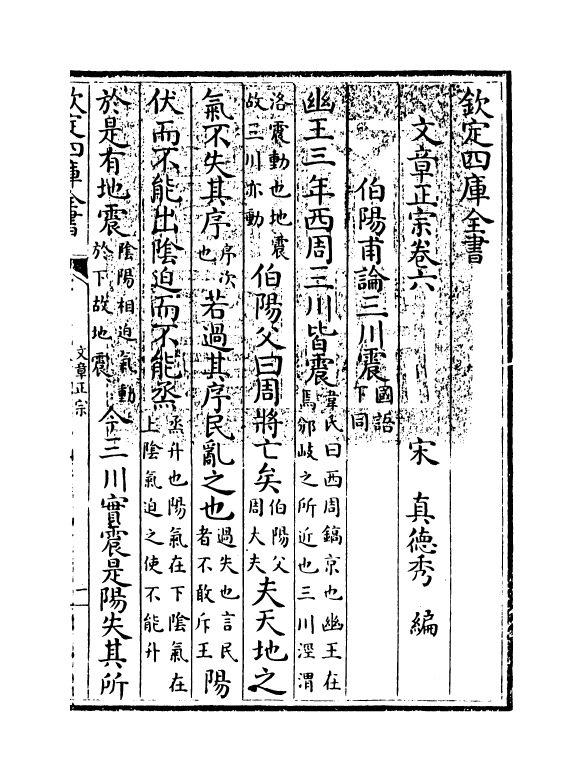 欽定四庫全書
文章正宗卷六 宋 真德秀 編
伯陽甫論三川震國語下同
幽王三年西周三川皆震韋氏曰西周鎬京也幽王在焉邠岐之所近也三川涇渭
洛震動也地震故三川亦動伯陽父曰周將亡矣伯陽父周大夫夫天地之
氣不失其序序次也若過其序民亂之也過失也言民者不敢斥王陽
伏而不能出陰迫而不能烝烝升也陽氣在下陰氣在上陰氣迫之使不能升
於是有地震陰陽相迫氣動於下故地震今三川實震是陽失其所
欽定四庫全書
文章正宗